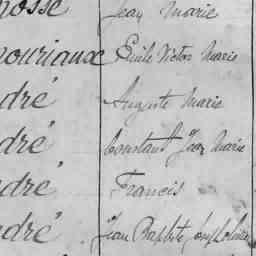 osse Jean Marie
houriaux Emile Victor Marie
dré Auguste Marie
dré Constant Jean Marie
dré Francis
dré Jean Baptiste